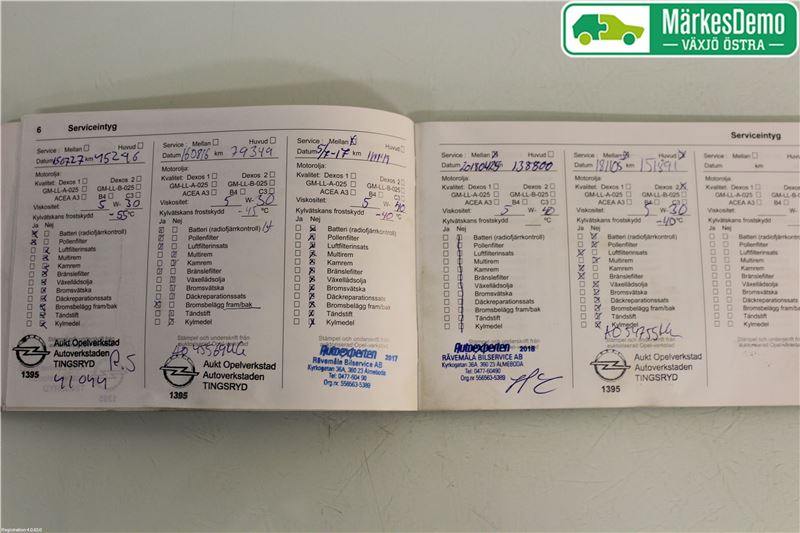 MärkesDemo
VÄXJÖ ÖSTRA
6 Serviceintyg
Service: Mellan Huvud
Datum 150727 km 45296
Motorolja:
Kvalitet: Dexos 1 Dexos 2
GM-LL-A-025 GM-LL-B-025
ACEA A3 B4 C3
Viskositet: 5 W- 30
Kylvätskans frostskydd
-55°C
Ja Nej
Batteri (radiofjärrkontroll)
Pollenfilter
Luftfilterinsats
Multirem
Kamrem
Bränslefilter
Växellådsolja
Bromsvätska
Däckreparationssats
Bromsbelägg fram/bak
Tändstift
Kylmedel
Aukt Opelverkstad
Autoverkstaden
TINGSRYD
1395
41044
R.S
Service: Mellan Huvud
Datum 160816 km 79349
Motorolja:
Kvalitet: Dexos 1 Dexos 2
GM-LL-A-025 GM-LL-B-025
ACEA A3 B4 C3
Viskositet: 5 W- 30
Kylvätskans frostskydd
-45°C
Ja Nej
Batteri (radiofjärrkontroll)
Pollenfilter
Luftfilterinsats
Multirem
Kamrem
Bränslefilter
Växellådsolja
Bromsvätska
Däckreparationssats
Bromsbelägg fram/bak
Tändstift
Kylmedel
Stämpel och underskrift från
Aukt Opelverkstad
Autoverkstaden
TINGSRYD
1395
Service: Mellan Huvud
Datum 5/7-17 km
Motorolja:
Kvalitet: Dexos 1 Dexos 2
GM-LL-A-025 GM-LL-B-025
ACEA A3 B4 C3
Viskositet: 5 W- 40
Kylvätskans frostskydd
-40°C
Ja Nej
Batteri (radiofjärrkontroll)
Pollenfilter
Luftfilterinsats
Multirem
Kamrem
Bränslefilter
Växellådsolja
Bromsvätska
Däckreparationssats
Bromsbelägg fram/bak
Tändstift
Kylmedel
Stämpel och underskrift från
Autoexperten 2017
RÄVEMÅLA BILSERVICE AB
Kyrkogatan 36A, 360 23 ÄLMEBODA
Tel: 0477-604 90
Org.nr 556563-5389
Serviceintyg
Service: Mellan Huvud
Datum 20180425 km 138800
Motorolja:
Kvalitet: Dexos 1 Dexos 2
GM-LL-A-025 GM-LL-B-025
ACEA A3 B4 C3
Viskositet: 5 W- 40
Kylvätskans frostskydd
°C
Ja Nej
Batteri (radiofjärrkontroll)
Pollenfilter
Luftfilterinsats
Multirem
Kamrem
Bränslefilter
Växellådsolja
Bromsvätska
Däckreparationssats
Bromsbelägg fram/bak
Tändstift
Kylmedel
Stämpel och underskrift från
Autoexperten 2018
RÄVEMÅLA BILSERVICE AB
Kyrkogatan 36A, 360 23 ÄLMEBODA
Tel: 0477-60490
Org.nr 556563-5389
Service: Mellan Huvud
Datum 181105 km 151891
Motorolja:
Kvalitet: Dexos 1 Dexos 2
GM-LL-A-025 GM-LL-B-025
ACEA A3 B4 C3
Viskositet: 5 W- 30
Kylvätskans frostskydd
-40°C
Ja Nej
Batteri (radiofjärrkontroll)
Pollenfilter
Luftfilterinsats
Multirem
Kamrem
Bränslefilter
Växellådsolja
Bromsvätska
Däckreparationssats
Bromsbelägg fram/bak
Tändstift
Kylmedel
Aukt Opelverkstad
Autoverkstaden
TINGSRYD
1395
Service: Mellan
Datum km
Motorolja:
Kvalitet: Dexos 1
GM-LL-A-025
ACEA A3
Viskositet:
Kylvätskans frostskydd
Ja Nej
Batteri (radiofjärrkontroll)
Pollenfilter
Luftfilterinsats
Multirem
Kamrem
Bränslefilter
Växellådsolja
Bromsvätska
Däckreparationssats
Bromsbelägg fram/bak
Tändstift
Kylmedel
Stämpel och underskrift
auktoriserad Opel-verkstad